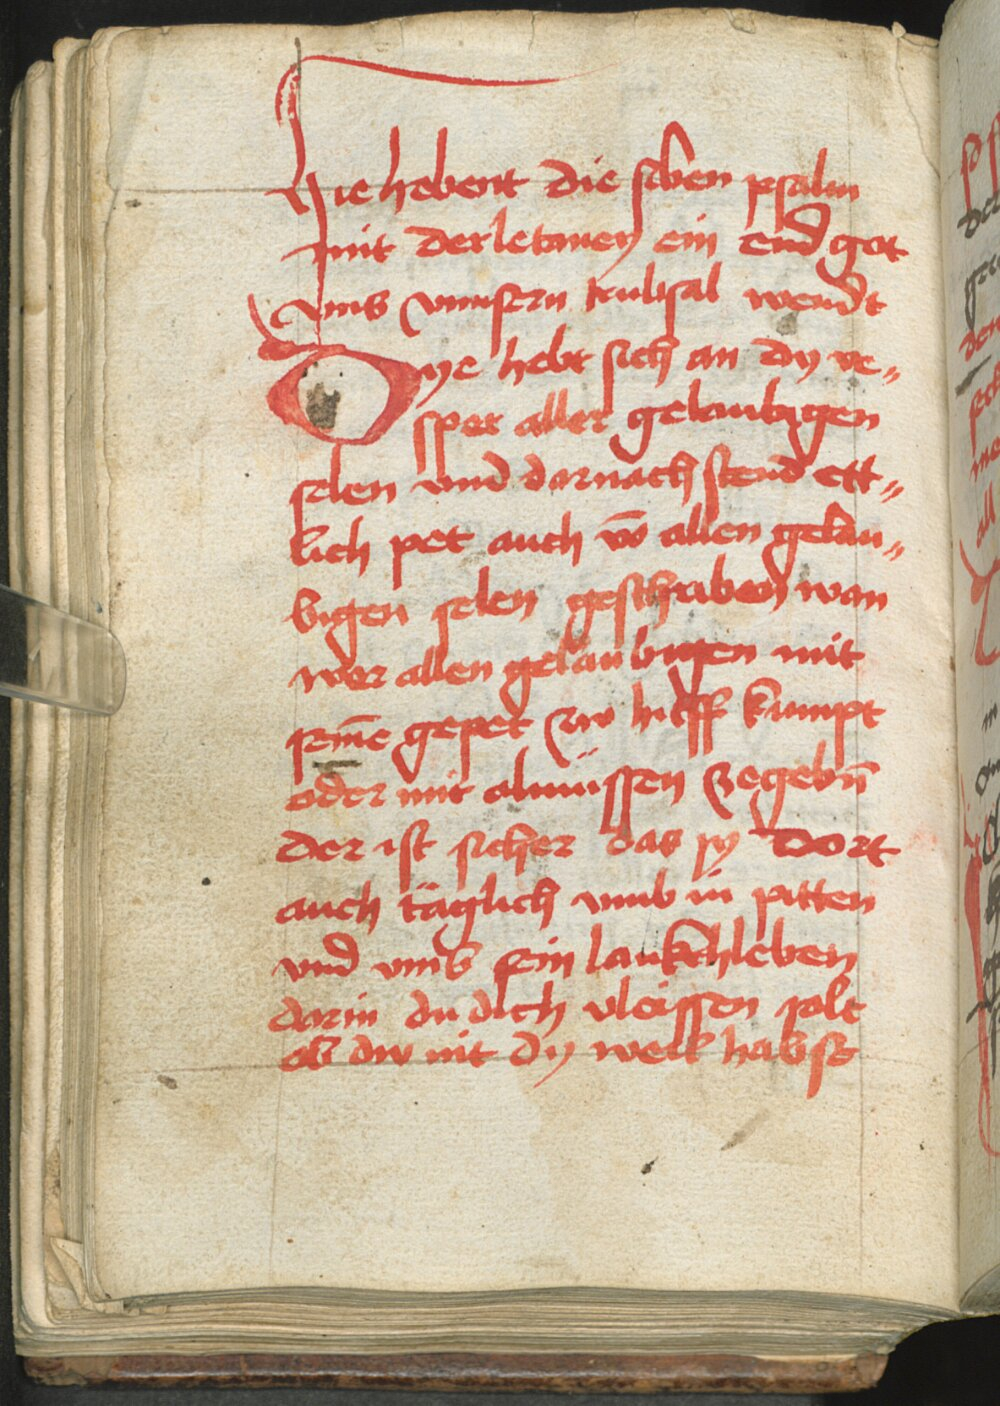 Hie hebent die siben psalm
mit der letaney ein end got
vns vnnsern trubsal wendt
Hye hebt sich an dy ve„
sper aller gelaubigen
selen vnd darnach stend ett„
lich pet auch vō allen gelau„
bigen selen geschriben wan
wer allen gelaubigen mit
seinē gepet zw hilff kumpt
oder mit almüssen zegebn̄
der ist sicher das sy dort
auch täglich vmb in pitten
vnd vmb sein leben
darin du dich vleissen solt
ob dw nit dy weil habst